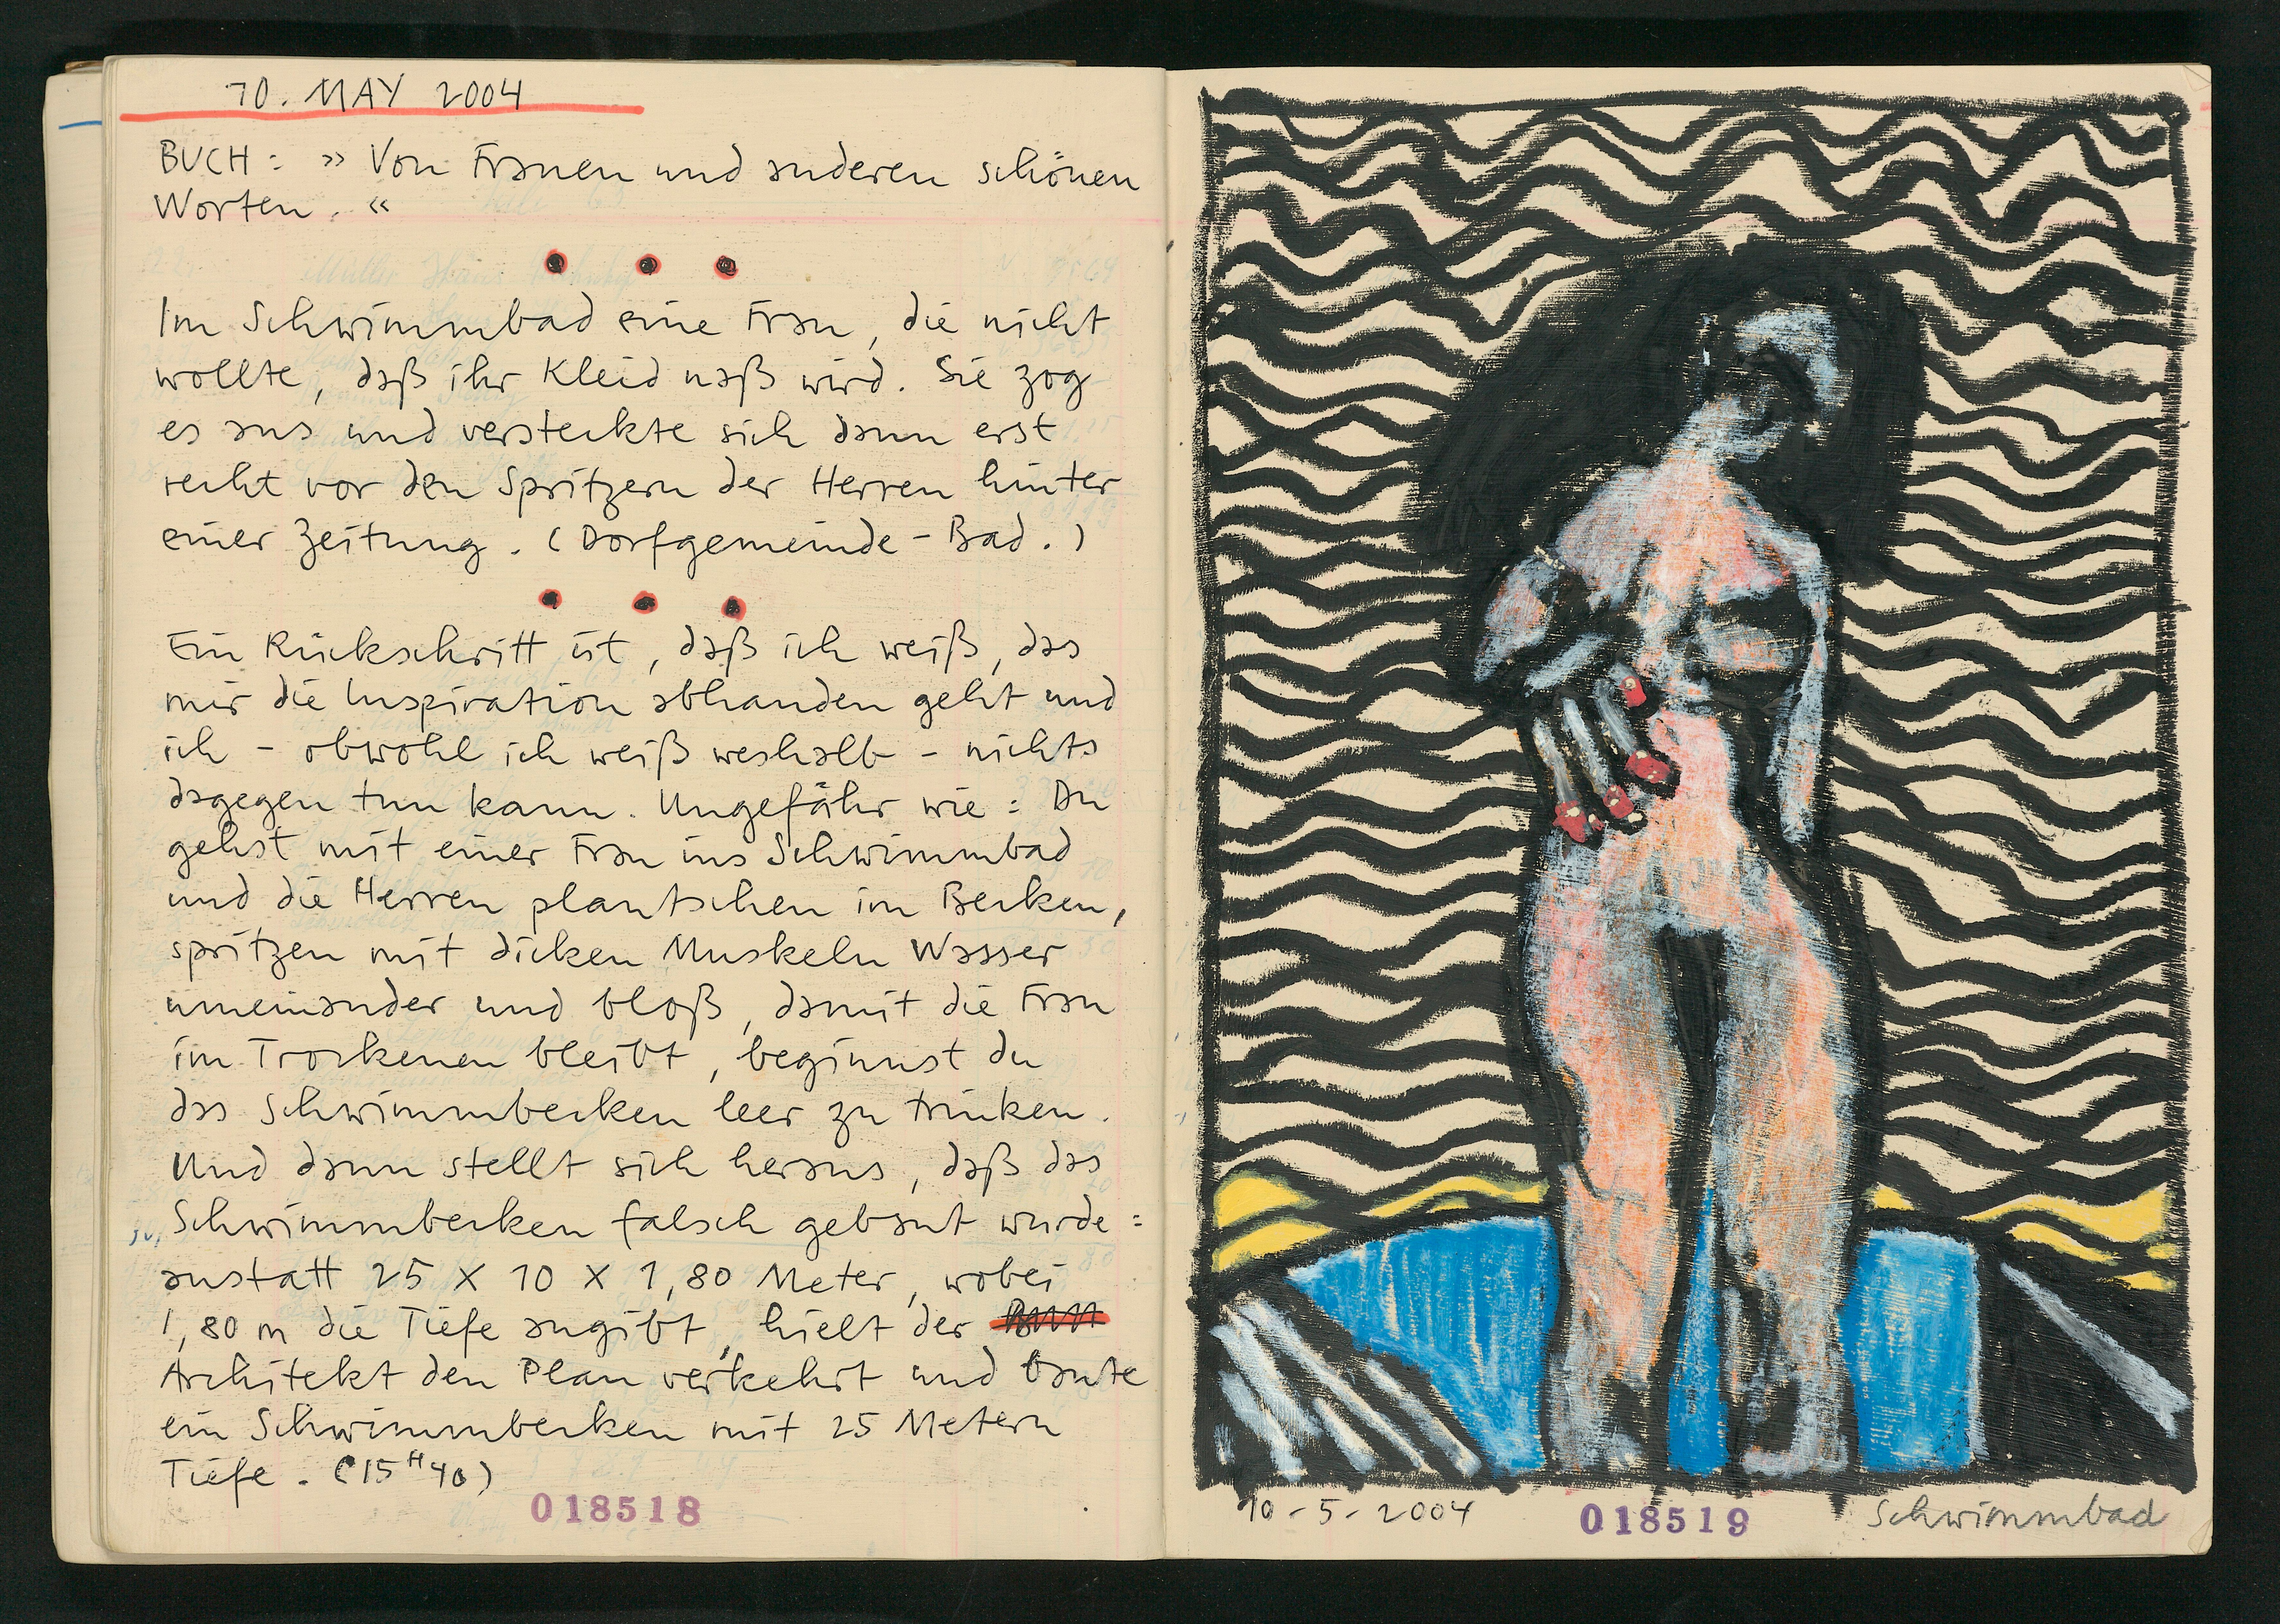 10. MAY 2004
BUCH: »Von Frauen und anderen schönen
Worten.«
Im Schwimmbad eine Frau, die nicht
wollte, daß ihr Kleid naß wird. Sie zog
es aus und versteckte sich dann erst
recht vor den Spritzern der Herren hinter
einer Zeitung. (Dorfgemeinde-Bad.)
Ein Rückschritt ist, daß ich weiß, das
mir die Inspiration abhanden geht und
ich - obwohl ich weiß weshalb - nichts
dagegen tun kann. Ungefähr wie: Du
gehst mit einer Frau ins Schwimmbad
und die Herren plantschen im Becken,
spritzen mit dicken Muskeln Wasser
umeinander und bloß, damit die Frau
im Trockenen bleibt, beginnst du
das Schwimmbecken leer zu trinken.
Und dann stellt sich heraus, daß das
Schwimmbecken falsch gebaut wurde:
anstatt 25 X 10 X 1,80 Meter, wobei
1,80 m die Tiefe angibt, hielt der
Architekt den Plan verkehrt und baute
ein Schwimmbecken mit 25 Metern
Tiefe. (15H40)
018518
10-5-2004 018519 Schwimmbad